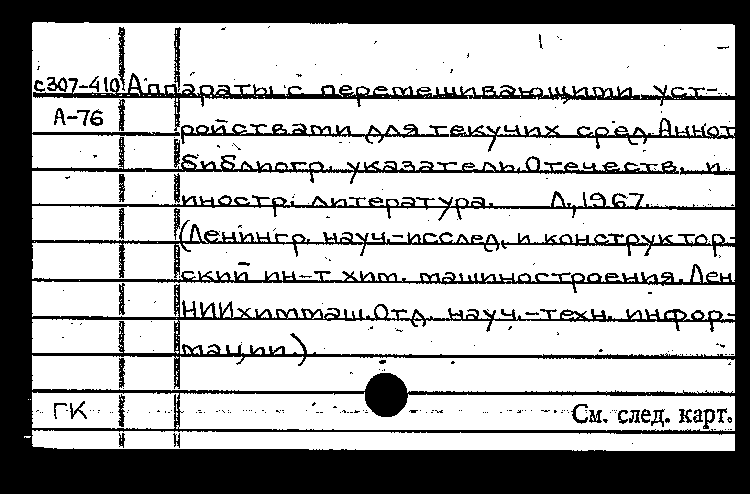 с307-410 Аппараты с перемешивающими уст-
А-76
ройствами для текучих сред. Аннот
библиогр. указатель. Отечеств. и
иностр. литература. Л., 1967.
(Ленингр. науч.-исслед. и конструктор-
ский ин-т хим. машиностроения. Лен
НИИхиммаш. Отд. науч.-техн. инфор-
мации.).
ГК
См. след. карт.